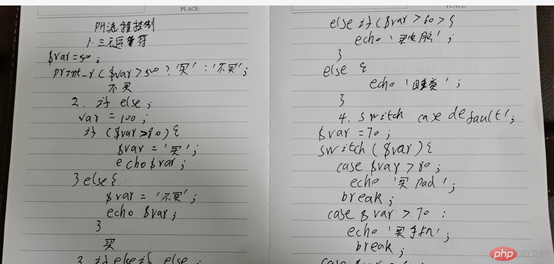 PLACE:
PH流程控制
1. 三元运算符
$var=50;
print_r($var>50?'买':'不买';
不买
2. if else;
var = 100;
if ($var>80){
$var = '买';
echo $var;
}else{
$var = '不买';
echo $var;
}
买
3 if else if else;
PLACE:
else if ($var>60>{
echo '买电脑';
}
else {
echo '睡觉';
}
4. switch case default;
$var = 70;
switch ($var){
case $var > 80;
echo '买pad';
break;
case $var > 70:
echo '买手机';
break;
php